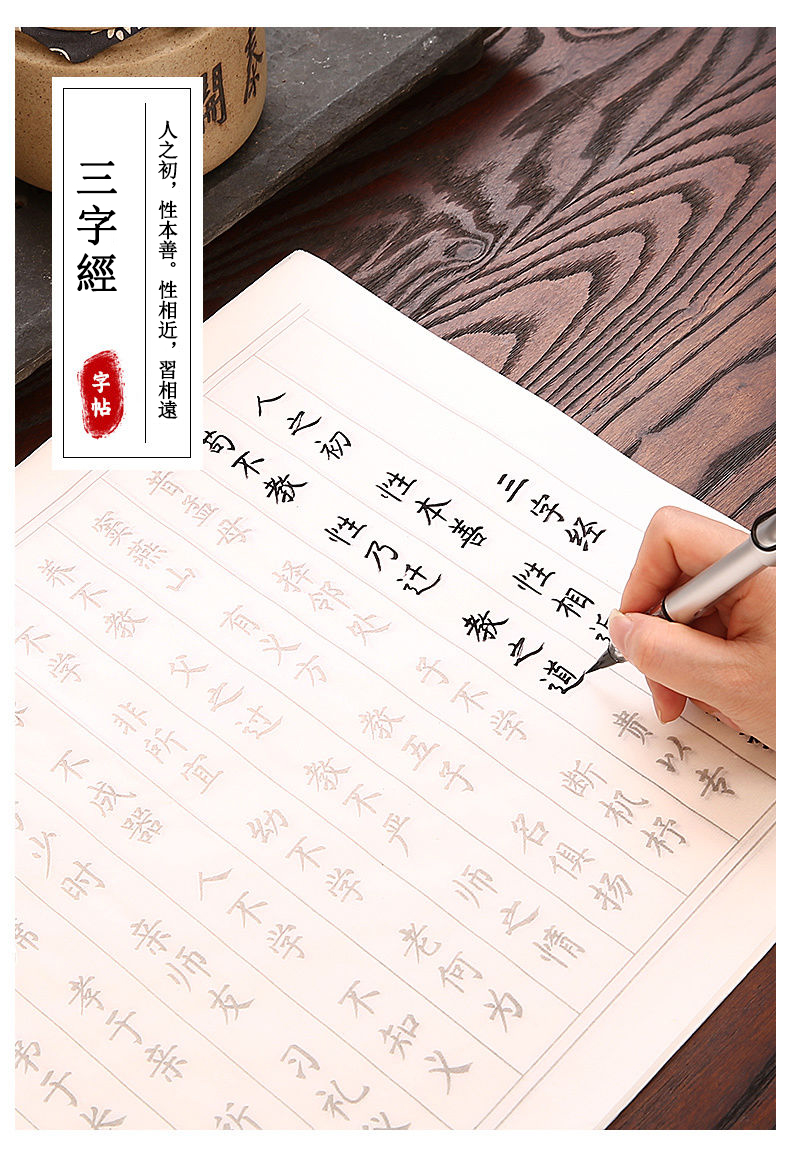 三字經
人之初，性本善。性相近，習相遠
字帖
三字经
人之初 性本善 性相近
苟不教 性乃迁 教之道 贵以专
昔孟母 择邻处 子不学 断机杼
窦燕山 有义方 教五子 名俱扬
养不教 父之过 教不严 师之惰
不学 非所宜 幼不学 老何为
不成器 人不学 不知义
少时 亲师友 习礼仪
席 孝于亲 所
弟于长
開泰